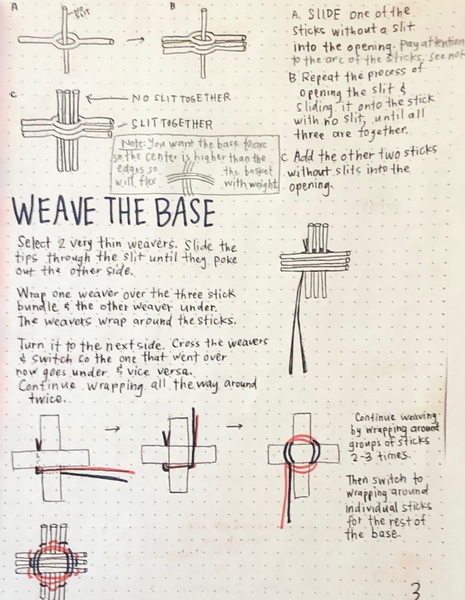 A
NO SLIT
B
A. SLIDE one of the
sticks without a slit
into the opening. Pay attention
to the arc of the sticks, see note
B Repeat the process of
opening the slit &
sliding it onto the stick
with no slit, until all
three are together.
C Add the other two sticks
without slits into the
opening.
C
NO SLIT TOGETHER
SLIT TOGETHER
Note: You want the base to arc
so the center is higher than the
edges so the basket
will flex with weight
WEAVE THE BASE
Select 2 very thin weavers. Slide the
tips through the slit until they poke
out the other side.
Wrap one weaver over the three stick
bundle & the other weaver under.
The weavers wrap around the sticks.
Turn it to the next side. Cross the weavers
& switch so the one that went over
now goes under & vice versa.
Continue wrapping all the way around
twice.
Continue weaving
by wrapping around
groups of sticks
2-3 times.
Then switch to
wrapping around
individual sticks
for the rest of
the base.
3